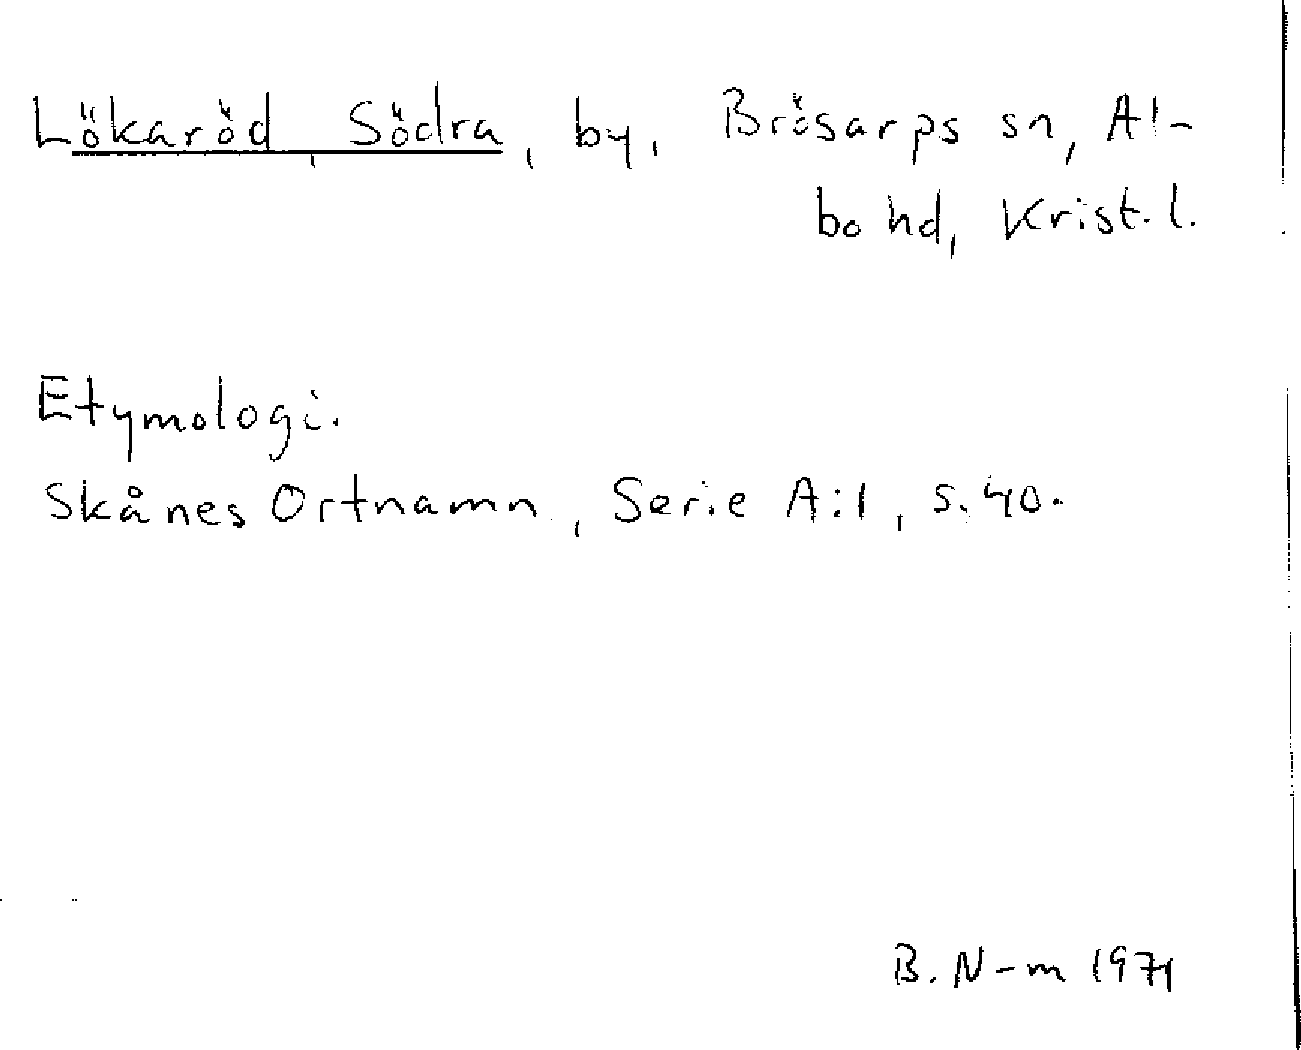 Lökaröd, Södra, by, Brösarps sn, Al-
bo hd, Krist. l.
Etymologi.
Skånes Ortnamn, Serie A:1, s. 40.
B. N-m 1971